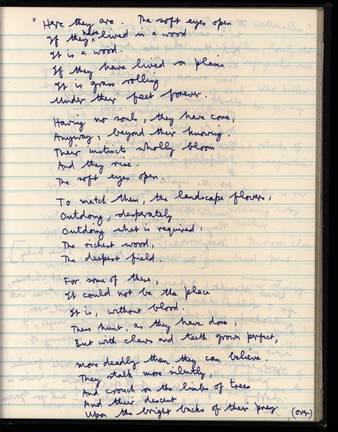 " Here they are. The soft eyes open
If they have lived in a wood
It is a wood.
If they have lived on plains
It is grass rolling
Under their feet forever.
Having no souls, they have come,
Anyway, beyond their knowing.
Their instincts wholly bloom
And they rise.
The soft eyes open.
To match them, the landscape flowers,
Outdoing, desperately
Outdoing what is required:
The richest wood,
The deepest field.
For some of these,
It could not be the place
It is, without blood.
These hunt, as they have done,
But with claws and teeth grown perfect,
More deadly than they can believe.
They stalk more silently,
And crouch on the limbs of trees
And their descent
Upon the bright backs of their prey (over)